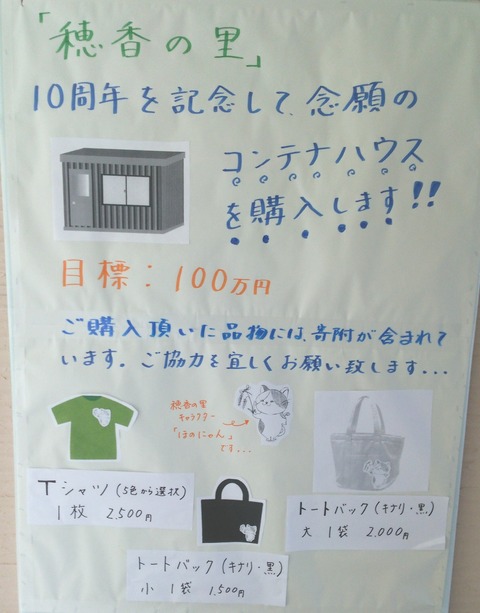 「穂香の里」
10周年を記念して、念願の
コンテナハウス
を購入します!!
目標：100万円
ご購入頂いた品物には、寄附が含まれて
います。ご協力を宜しくお願い致します...
穂香の里
キャラクター
「ほのにゃん」
です...
Tシャツ(5色から選択)
1枚 2,500円
トートバック(キナリ・黒)
大 1袋 2,000円
トートバック(キナリ・黒)
小 1袋 1,500円